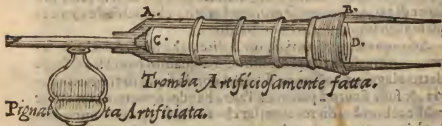 A. B.
C. D.
Tromba Artificiosamente fatta.
Pignatta Artificiata.